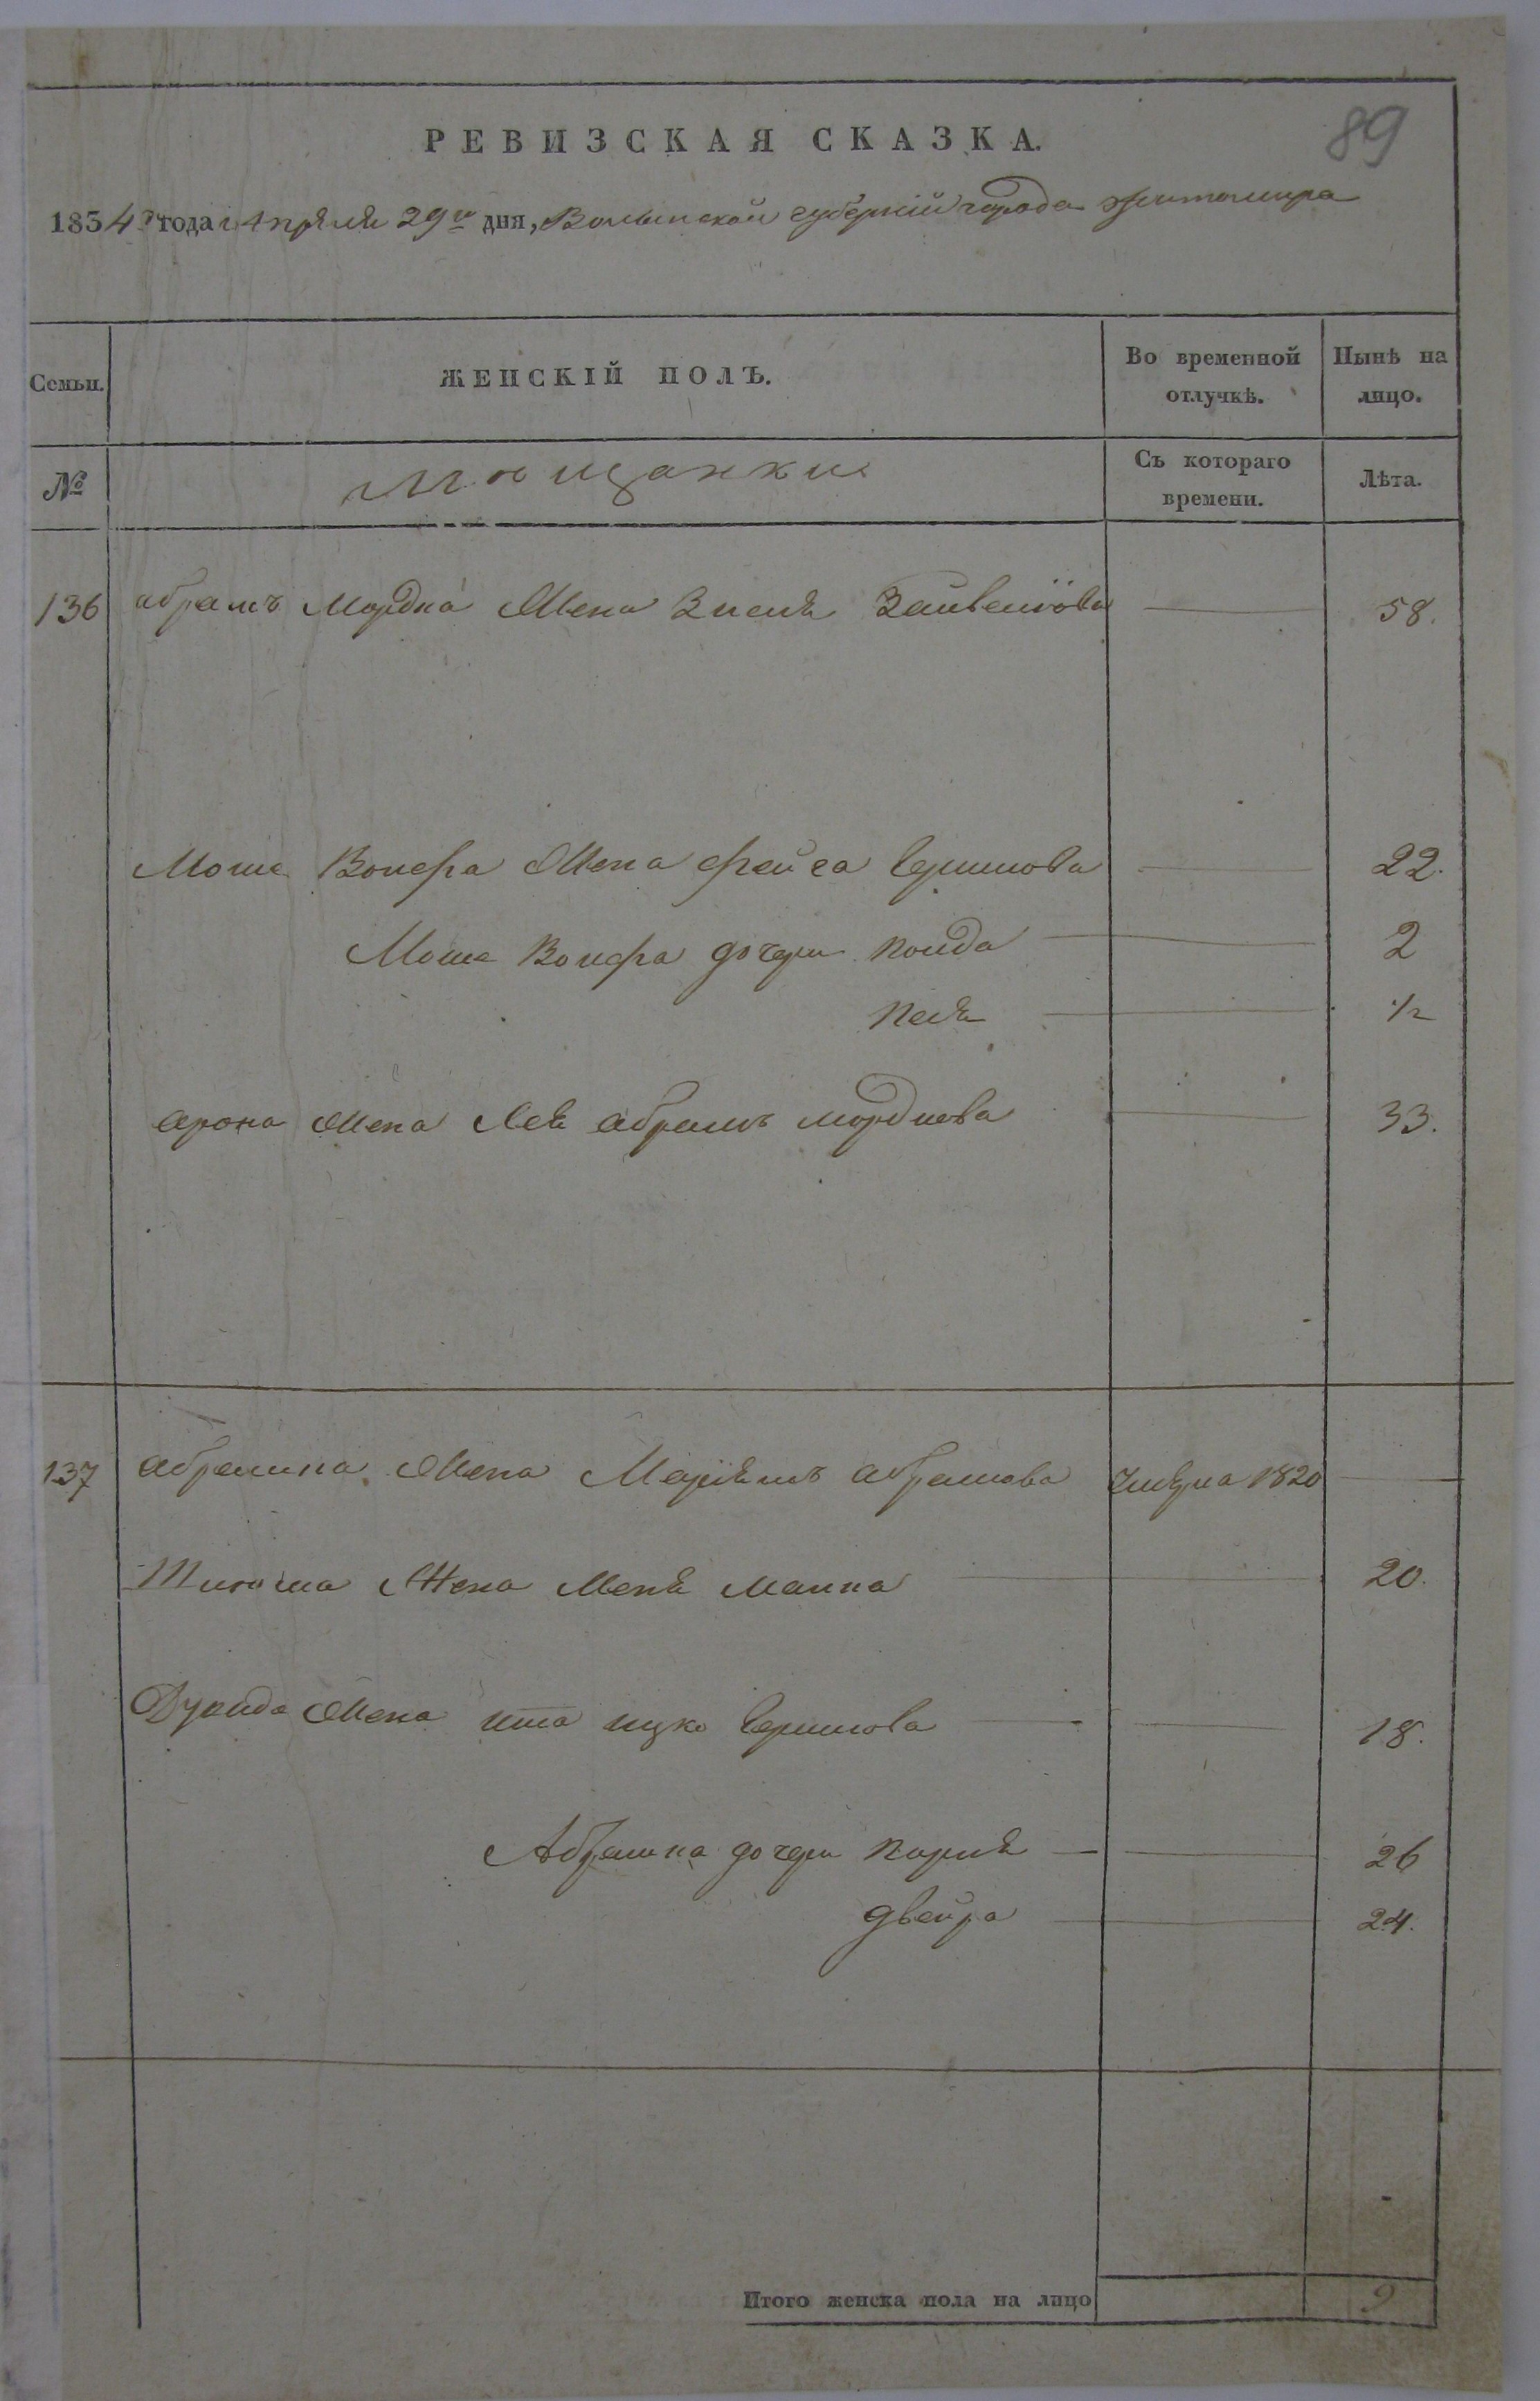 89
РЕВИЗСКАЯ СКАЗКА.
1834го года Апреля 29го дня, Волынской губернии города Житомира
Семьи.
ЖЕНСКІЙ ПОЛЪ.
Во временной отлучкѣ.
Нынѣ на лицо.
№
Мещанки
Съ котораго времени.
Лѣта.
136 абрамъ Мордка Жена Зисля 58.
Моше Вольфа Жена фейга Бершкова 22.
Моше Вольфа дочери 2
Песя 1/2
арона Жена Лея абрамъ мордкова 33.
137 абрамка Жена Маріямъ абрамова 1820
Жена Маика 20.
Жена ита ицко Бершкова 18.
Абрамка дочери 26
двейра 24.
Итого женска пола на лицо 9